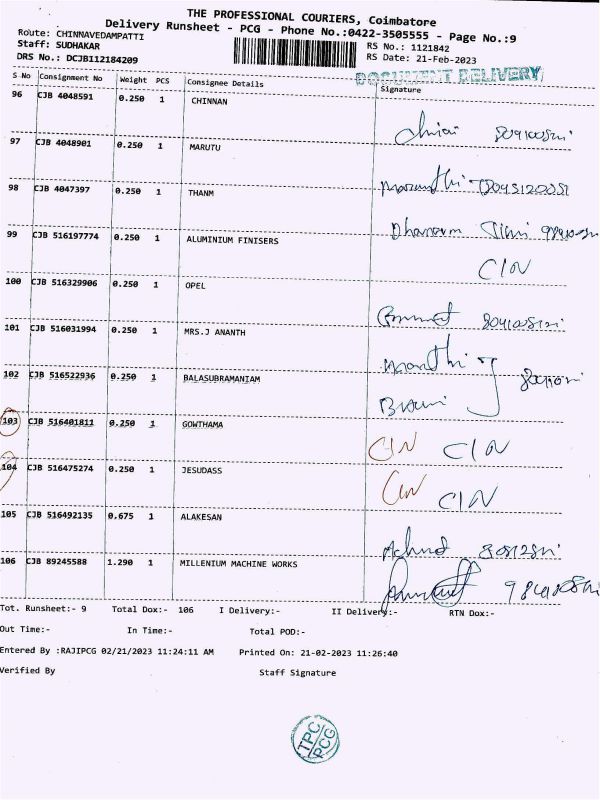 THE PROFESSIONAL COURIERS, Coimbatore
Delivery Runsheet - PCG - Phone No.:0422-3505555 - Page No.:9
Route: CHINNAVEDAMPATTI
Staff: SUDHAKAR
DRS No.: DCJB112184209
RS No.: 1121842
RS Date: 21-Feb-2023
DOCUMENT DELIVERY
S No Consignment No Weight PCS Consignee Details Signature
96 CJB 4048591 0.250 1 CHINNAN
97 CJB 4048901 0.250 1 MARUTU
98 CJB 4047397 0.250 1 THANM
99 CJB 516197774 0.250 1 ALUMINIUM FINISERS
C/N
100 CJB 516329906 0.250 1 OPEL
101 CJB 516031994 0.250 1 MRS.J ANANTH
102 CJB 516522936 0.250 1 BALASUBRAMANIAM
103 CJB 516401811 0.250 1 GOWTHAMA
C/N C/N
104 CJB 516475274 0.250 1 JESUDASS
C/N C/N
105 CJB 516492135 0.675 1 ALAKESAN
106 CJB 89245588 1.290 1 MILLENIUM MACHINE WORKS
Tot. Runsheet:- 9 Total Dox:- 106 I Delivery:- II Delivery:- RTN Dox:-
Out Time:- In Time:- Total POD:-
Entered By :RAJIPCG 02/21/2023 11:24:11 AM Printed On: 21-02-2023 11:26:40
Verified By Staff Signature
TPC
PCG